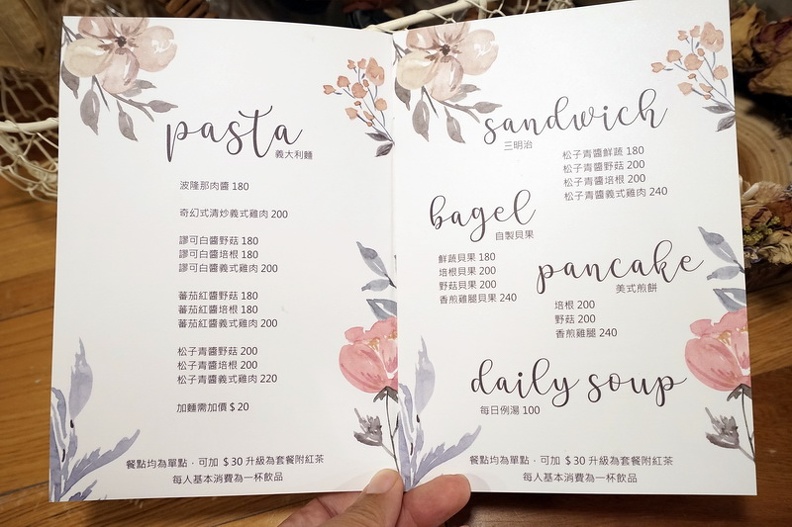 pasta
義大利麵
波隆那肉醬 180
奇幻式清炒義式雞肉 200
謬可白醬野菇 180
謬可白醬培根 180
謬可白醬義式雞肉 200
蕃茄紅醬野菇 180
蕃茄紅醬培根 180
蕃茄紅醬義式雞肉 200
松子青醬野菇 200
松子青醬培根 200
松子青醬義式雞肉 220
加麵需加價 $ 20
餐點均為單點，可加 $ 30 升級為套餐附紅茶
每人基本消費為一杯飲品
sandwich
三明治
松子青醬鮮蔬 180
松子青醬野菇 200
松子青醬培根 200
松子青醬義式雞肉 240
bagel
自製貝果
鮮蔬貝果 180
培根貝果 200
野菇貝果 200
香煎雞腿貝果 240
pancake
美式煎餅
培根 200
野菇 200
香煎雞腿 240
daily soup
每日例湯 100
餐點均為單點，可加 $ 30 升級為套餐附紅茶
每人基本消費為一杯飲品